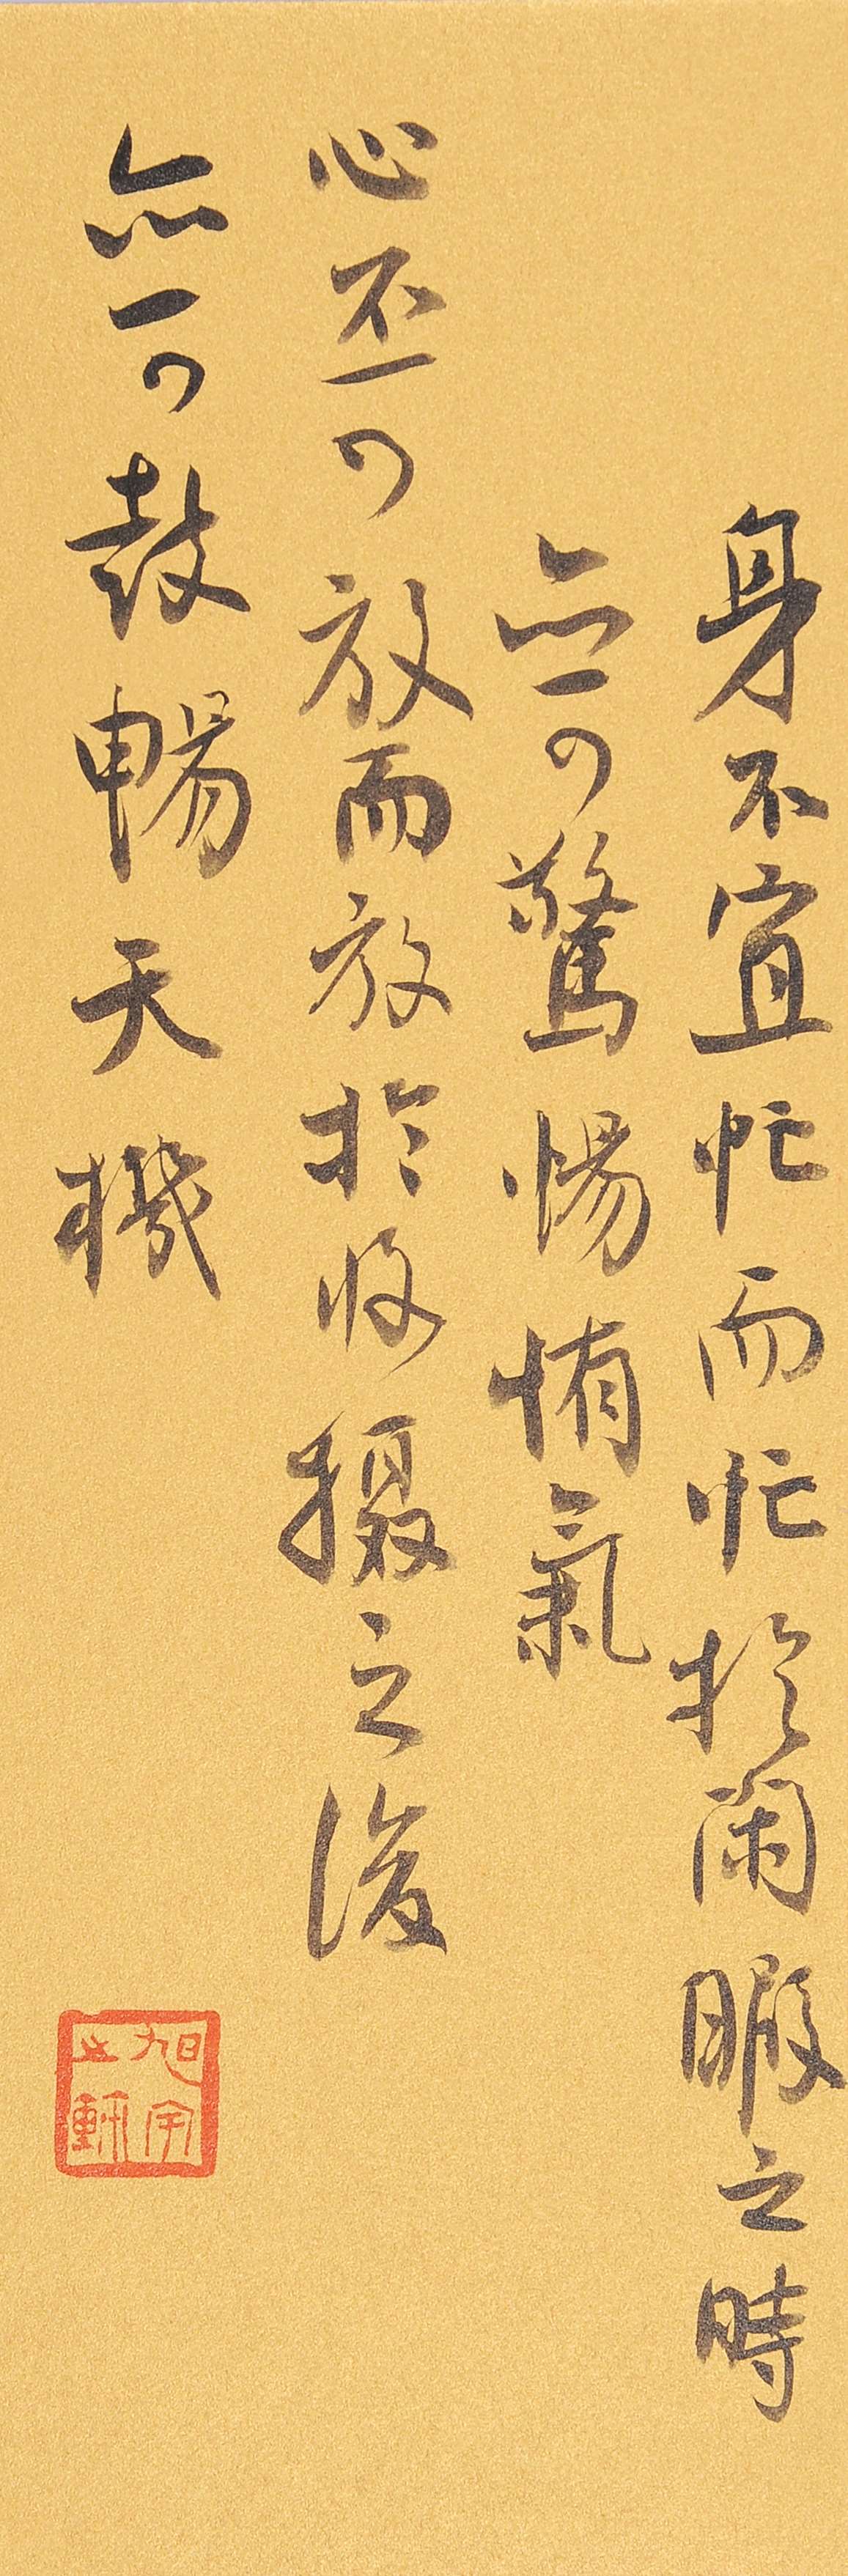 身不宜忙而忙於閑暇之時
亦可驚惕惰氣
心不可放而放於收摄之後
亦可鼓暢天機
旭宇